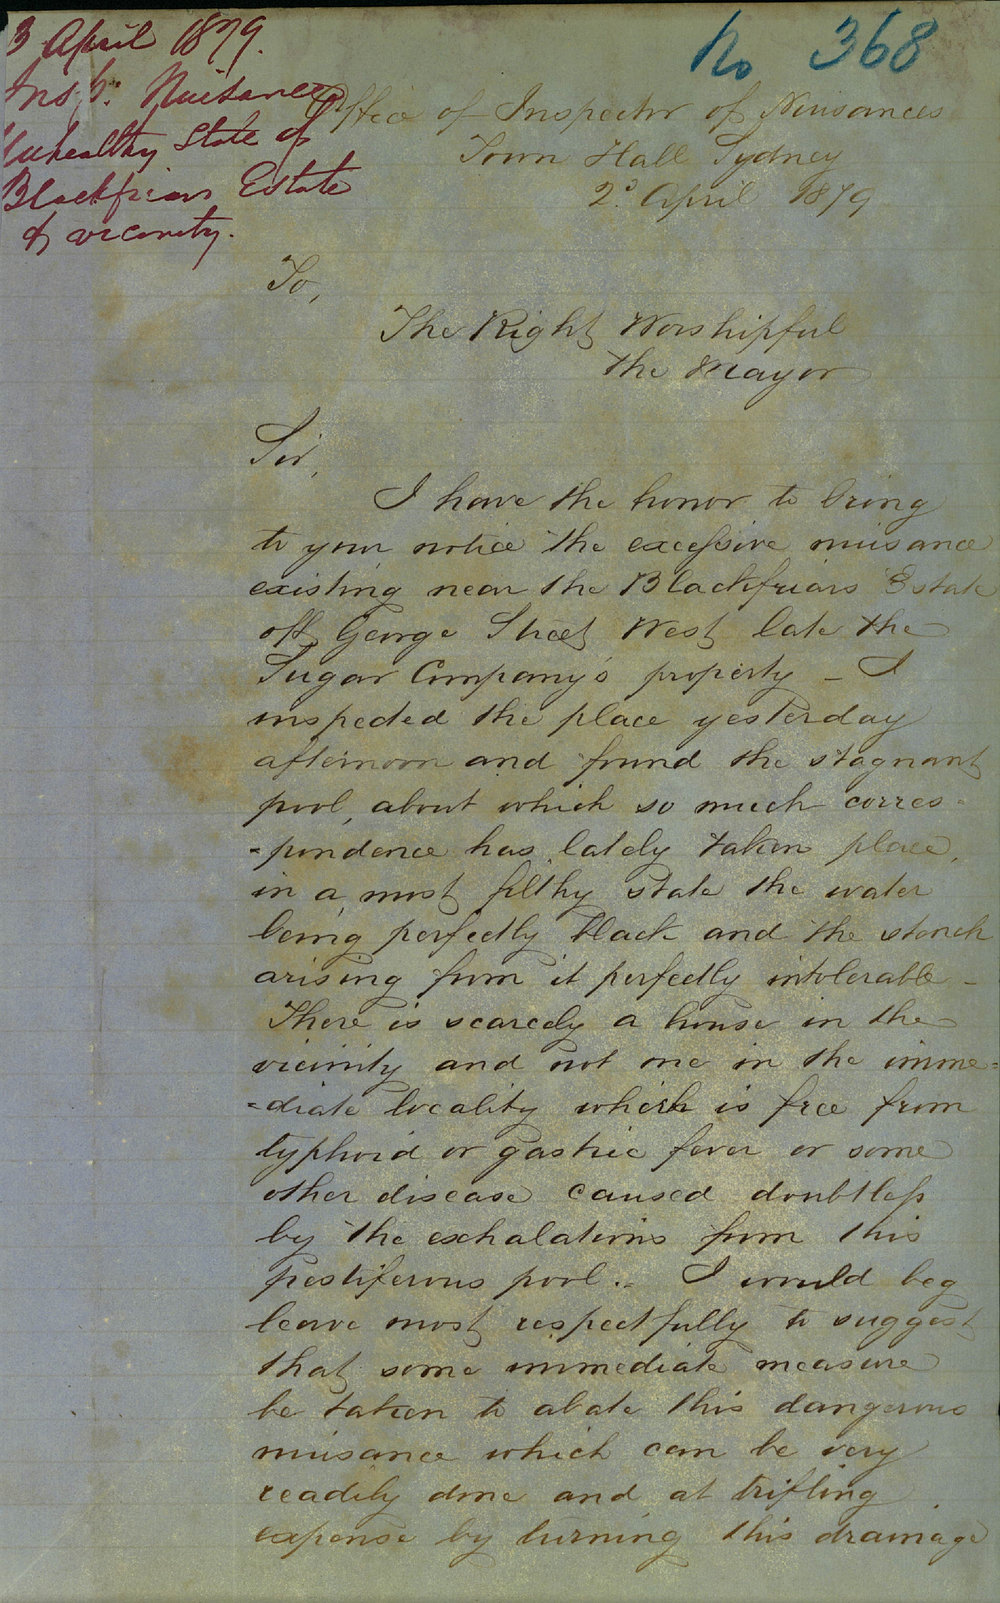 3 April 1879.
Insp. Nuisances
Unhealthy State of
Blackfriars Estate
& vicinity.
No 368
Office of Inspector of Nuisances
Town Hall Sydney
2d. April 1879
To,
The Right Worshipful
the Mayor
Sir,
I have the honor to bring
to your notice the excessive nuisance
existing near the Blackfriars Estate
off George Street West late the
Sugar Company's property – I
inspected the place yesterday
afternoon and found the stagnant
pool, about which so much corres=
=pondence has lately taken place,
in a most filthy state the water
being perfectly black and the stench
arising from it perfectly intolerable –
There is scarcely a house in the
vicinity and not one in the imme=
=diate locality which is free from
typhoid or gastric fever or some
other disease caused doubtless
by the exhalations from this
pestiferous pool. – I would beg
leave most respectfully to suggest
that some immediate measure
be taken to abate this dangerous
nuisance which can be very
readily done and at trifling
expense by turning this drainage